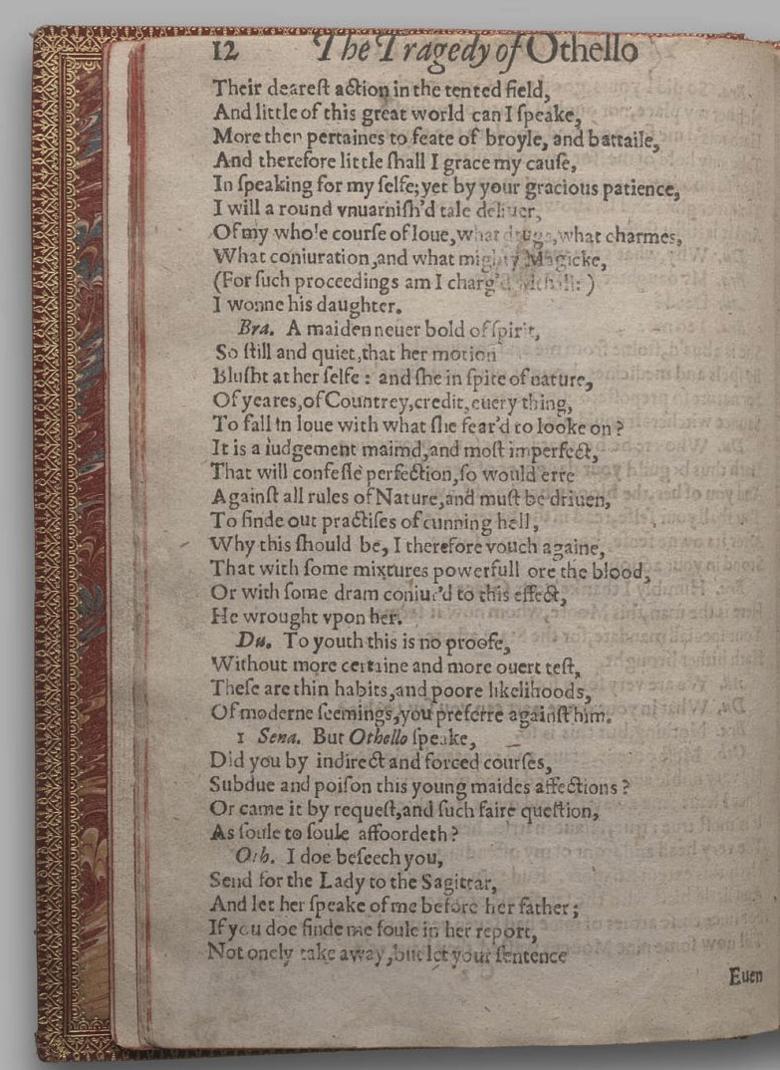 12 The Tragedy of Othello
Their deareſt action in the tented field,
And little of this great world can I ſpeake,
More then pertaines to feate of broyle, and battaile,
And therefore little ſhall I grace my cauſe,
In ſpeaking for my ſelfe; yet by your gracious patience,
I will a round vnuarniſh'd tale deliuer,
Of my whole courſe of loue, what drugs, what charmes,
What coniuration, and what mighty Magicke,
(For ſuch proceedings am I charg'd :)
I wonne his daughter.
Bra. A maiden neuer bold of ſpirit,
So ſtill and quiet, that her motion
Bluſht at her ſelfe : and ſhe in ſpite of nature,
Of yeares, of Countrey, credit, euery thing,
To fall in loue with what ſhe fear'd to looke on ?
It is a iudgement maimd, and moſt imperfect,
That will confeſſe perfection, ſo would erre
Againſt all rules of Nature, and muſt be driuen,
To finde out practiſes of cunning hell,
Why this ſhould be, I therefore vouch againe,
That with ſome mixtures powerfull ore the blood,
Or with ſome dram coniur'd to this effect,
He wrought vpon her.
Du. To youth this is no proofe,
Without more certaine and more ouert teſt,
Theſe are thin habits, and poore likelihoods,
Of moderne ſeemings, you preferre againſt him.
1 Sena. But Othello ſpeake,
Did you by indirect and forced courſes,
Subdue and poiſon this young maides affections ?
Or came it by requeſt, and ſuch faire queſtion,
As ſoule to ſoule affoordeth ?
Oth. I doe beſeech you,
Send for the Lady to the Sagittar,
And let her ſpeake of me before her father ;
If you doe finde me foule in her report,
Not onely take away, but let your ſentence
Euen